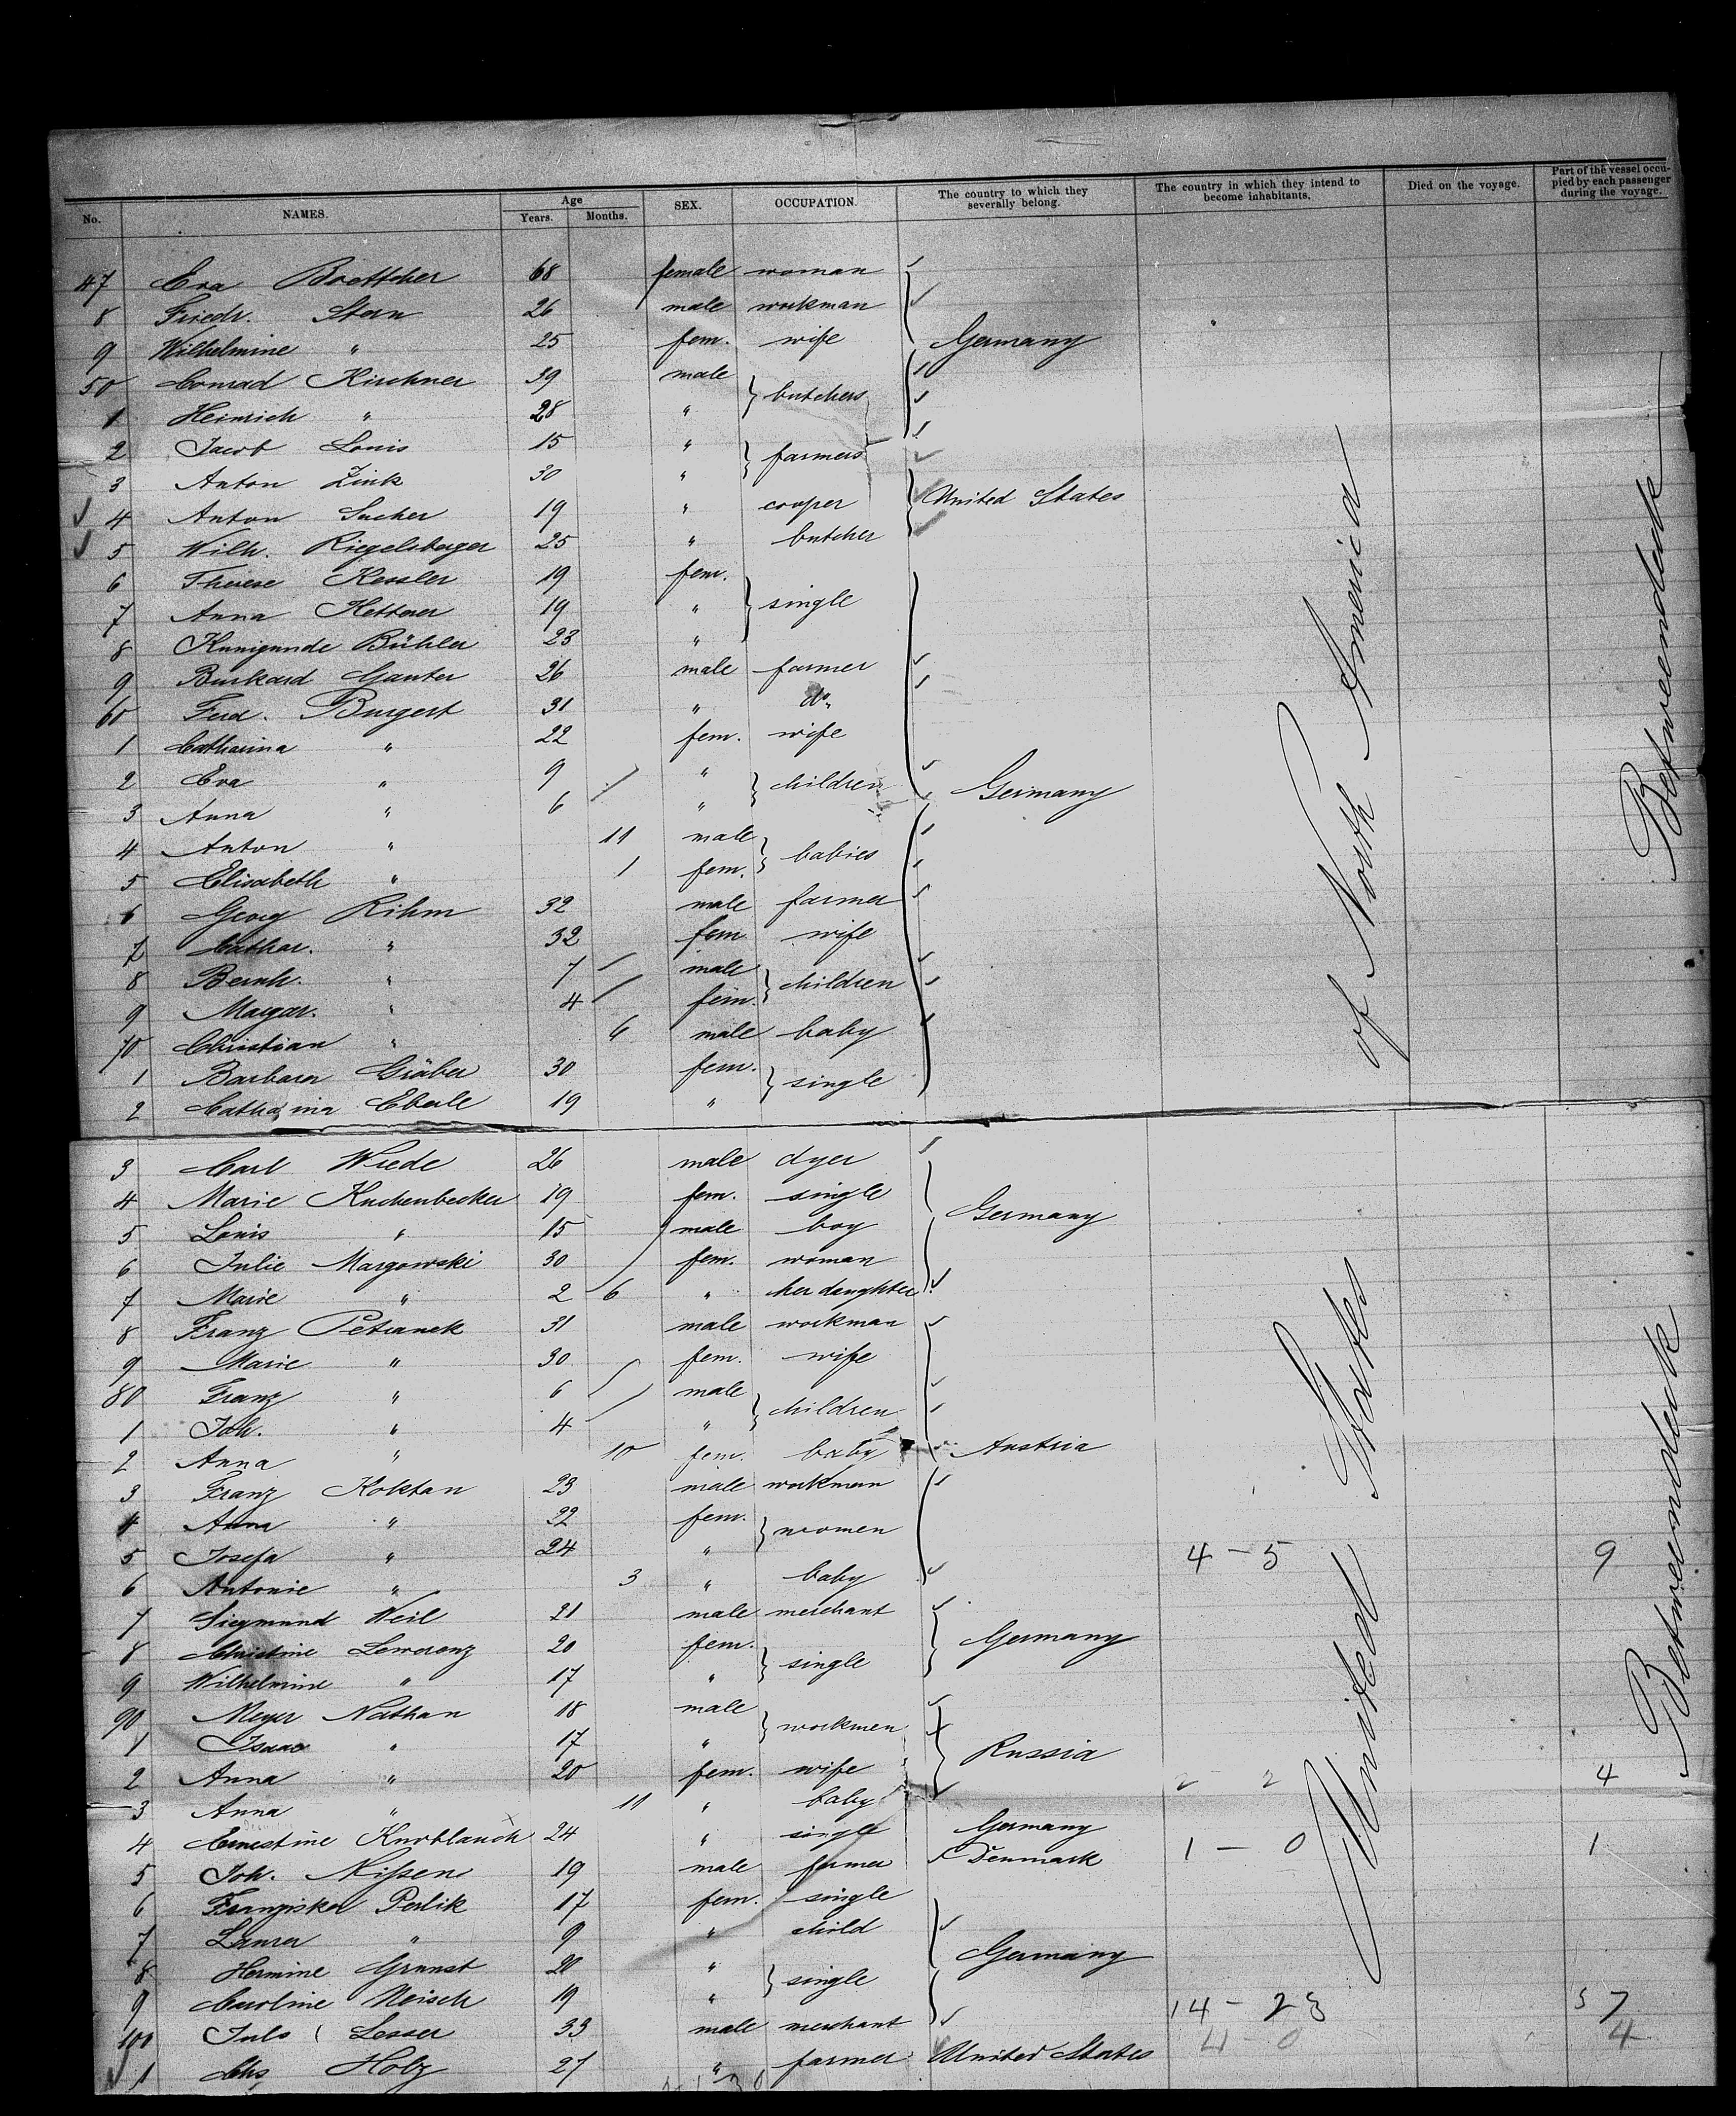 No. NAMES. Age Years. Months. SEX. OCCUPATION. The country to which they severally belong. The country in which they intend to become inhabitants. Died on the voyage. Part of the vessel occupied by each passenger during the voyage.
47 Eva Boettcher 68 female woman
8 Friedr. Stern 26 male workman
9 Wilhelmine " 25 fem. wife Germany
50 Conrad Kirchner 39 male } butchers
1 Heinrich " 28 "
2 Jacob Louis 15 " } farmers
3 Anton Zink 30 "
4 Anton Sucher 19 " cooper United States
5 Wilh. Riegelsberger 25 " butcher
6 Therese Kessler 19 fem.
7 Anna Hettner 19 " } single
8 Kunigunde Bühler 23 "
9 Burkard Ganter 26 male farmer
60 Ferd. Burgert 31 " do
1 Catharina " 22 fem. wife
2 Eva " 9 " } children Germany
3 Anna " 6 "
4 Anton " 11 male } babies
5 Elisabeth " 1 fem.
6 Georg Rihm 32 male farmer
7 Cathar. " 32 fem wife
8 Bernh. " 7 male } children
9 Margar. " 4 fem.
70 Christian " 6 male baby
1 Barbara Gräber 30 fem. } single
2 Catharina Eberle 19 "
3 Carl Wrede 26 male dyer
4 Marie Kuchenbecker 19 fem. single Germany
5 Louis " 15 male boy
6 Julie Margowski 30 fem. woman
7 Marie " 2 6 " her daughter
8 Franz Petranek 31 male workman
9 Marie " 30 fem. wife
80 Franz " 6 male } children
1 Joh. " 4 "
2 Anna " 10 fem. baby Austria
3 Franz Koktan 23 male workman
4 Anna " 22 fem. } women
5 Josefa " 24 " 4 - 5 9
6 Antonie " 3 " baby
7 Siegmund Weil 21 male merchant
8 Christine Lewerenz 20 fem. } single Germany
9 Wilhelmine " 17 "
90 Meyer Nathan 18 male } workmen
1 Isaac " 17 " Russia
2 Anna " 20 fem. wife 2 - 2 4
3 Anna " 11 " baby
4 Ernestine Knoblauch 24 " single Germany
5 Joh. Nissen 19 male farmer Denmark 1 - 0 1
6 Franziska Perlik 17 fem. single
7 Laura " 9 " child
8 Hermine Grunst 20 " } single Germany
9 Caroline Neisch 19 "
100 Jul's Lesser 33 male merchant 14 - 23 37
1 Chs. Holz 27 " farmer United States 4 - 0 4
United States of North America
Betweendeck
Betweendeck